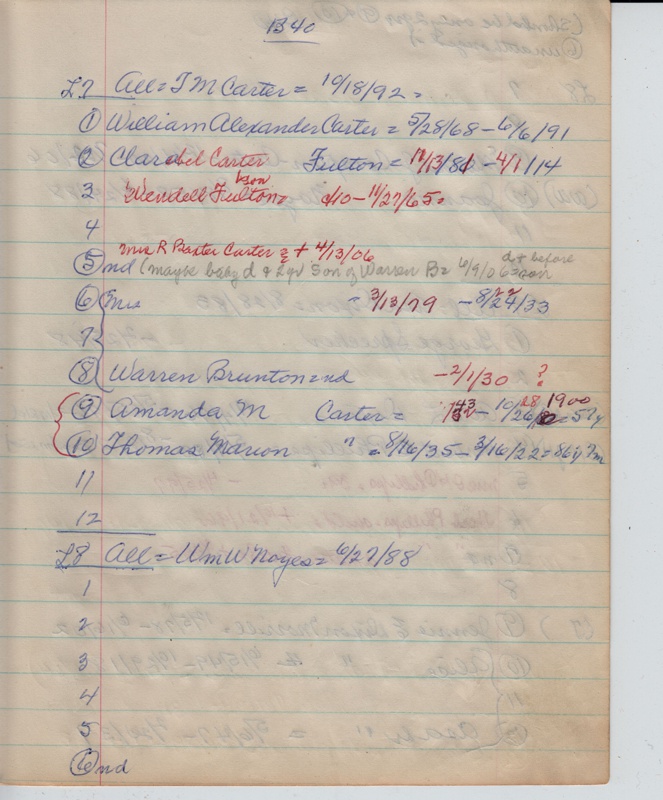 B40
L7 All = T M Carter = 10/18/92 =
① William Alexander Carter = 5/28/68 - 6/6/91
② Clarabel Carter Fulton = - 4/1/14
3 Wendell Fulton = d10 - 11/27/65 =
4
Mrs R Baxter Carter = + 4/13/06
⑤ nd (maybe baby d + 2yr son of Warren B = 6/9/06 = son
d + before
⑥ Mrs = 3/13/79 - 8/24/33
7
⑧ Warren Brunton = nd - 2/1/30 ?
⑨ Amanda M Carter = 10/26/ 28 1900 = 57y
⑩ Thomas Marion " = 8/16/35 - 3/16/22 = 86y 7m
11
12
L8 All = Wm W Noyes = 6/27/88
1
2
3
4
5
⑥ nd